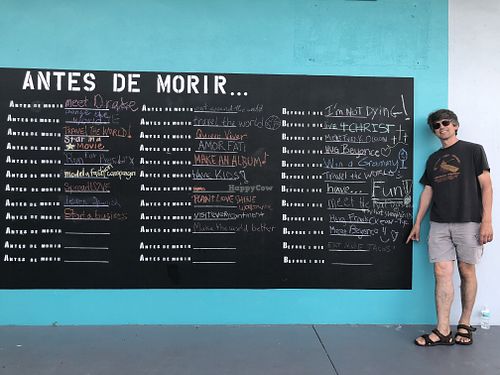 ANTES DE MORIR...
ANTES DE MORIR meet Drake
ANTES DE MORIR
ANTES DE MORIR TRAVEL THE WORLD!
ANTES DE MORIR Star in a MOVIE
ANTES DE MORIR Run For
ANTES DE MORIR model a fruit campaign
ANTES DE MORIR spread LOVE
ANTES DE MORIR Learn Spanish
ANTES DE MORIR Start a business
ANTES DE MORIR
ANTES DE MORIR
ANTES DE MORIR
ANTES DE MORIR eat around the world
ANTES DE MORIR travel the world
ANTES DE MORIR Quiero Vivir
ANTES DE MORIR AMOR FATI
ANTES DE MORIR MAKE AN ALBUM
ANTES DE MORIR Have KIDS
ANTES DE MORIR
ANTES DE MORIR PLANT LOVE SHINE
ANTES DE MORIR visit every continent
ANTES DE MORIR Make the world better
ANTES DE MORIR
ANTES DE MORIR
BEFORE I DIE I'm NOT DYING!
BEFORE I DIE live 4 CHRIST
BEFORE I DIE
BEFORE I DIE Beyonce
BEFORE I DIE Win a Grammy!
BEFORE I DIE Travel the WORLD
BEFORE I DIE have... Fun!
BEFORE I DIE meet the
BEFORE I DIE
BEFORE I DIE Meet Beyonce
BEFORE I DIE EAT MORE TACOS!
BEFORE I DIE
HappyCow